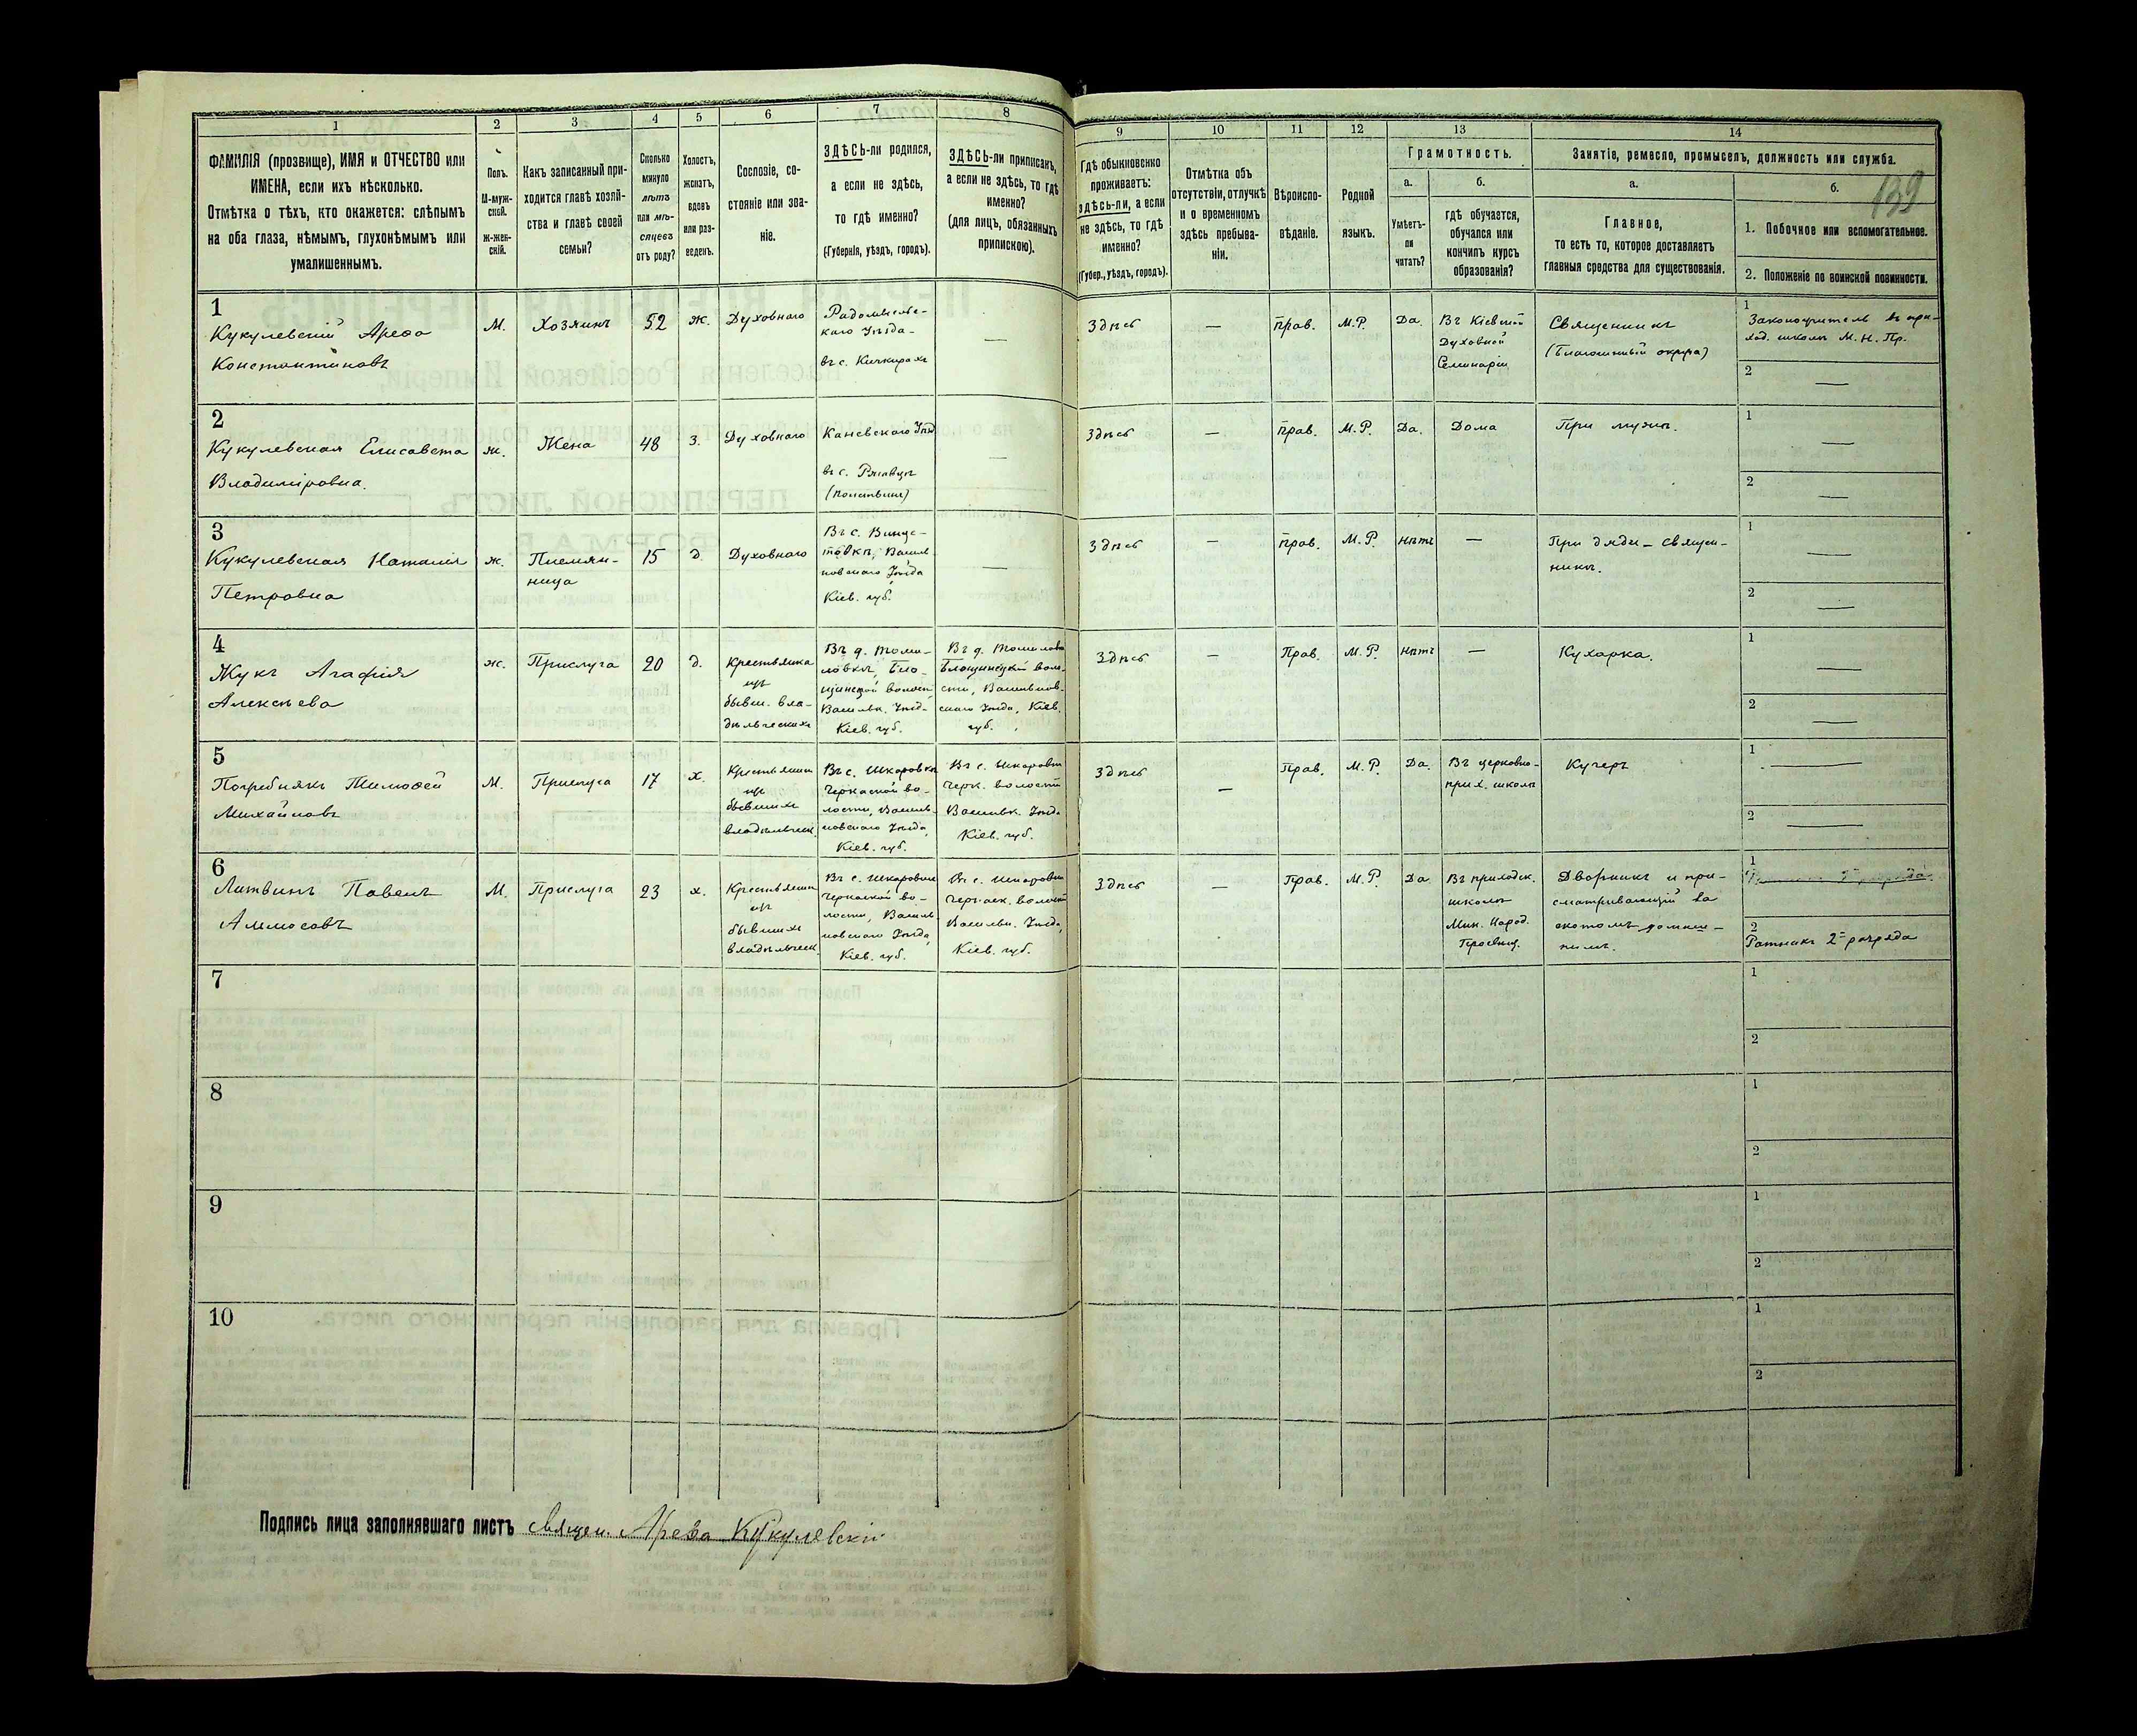 1
ФАМИЛІЯ (прозвище), ИМЯ и ОТЧЕСТВО или
ИМЕНА, если ихъ нѣсколько.
Отмѣтка о тѣхъ, кто окажется: слѣпымъ
на оба глаза, нѣмымъ, глухонѣмымъ или
умалишеннымъ.
2
Полъ.
М-муж-
ской.
ж-жен-
скій.
3
Какъ записанный при-
ходится главѣ хозяй-
ства и главѣ своей
семьи?
4
Сколько
минуло
лѣтъ
или мѣ-
сяцевъ
отъ роду?
5
Холостъ,
женатъ,
вдовъ
или раз-
веденъ.
6
Сословіе, со-
стояніе или зва-
ніе.
7
ЗДѢСЬ-ли родился,
а если не здѣсь,
то гдѣ именно?
(Губернія, уѣздъ, городъ).
8
ЗДѢСЬ-ли приписанъ,
а если не здѣсь, то гдѣ
именно?
(для лицъ, обязанныхъ
припискою).
9
Гдѣ обыкновенно
проживаетъ:
здѣсь-ли, а если
не здѣсь, то гдѣ
именно?
(Губер., уѣздъ, городъ).
10
Отмѣтка объ
отсутствіи, отлучкѣ
и о временномъ
здѣсь пребыва-
ніи.
11
Вѣроиспо-
вѣданіе.
12
Родной
языкъ.
13
Грамотность.
а.
Умѣетъ-
ли
читать?
б.
гдѣ обучается,
обучался или
кончилъ курсъ
образованія?
14
Занятіе, ремесло, промыселъ, должность или служба.
а.
Главное,
то есть то, которое доставляетъ
главныя средства для существованія.
б.
139
1. Побочное или вспомогательное.
2. Положеніе по воинской повинности.
1
Кукулевскій Арефа
Константиновъ
М.
Хозяинъ
52
ж.
Духовнаго
Радомысль-
скаго Уѣзда
въ с. Кичкирахъ
—
Здѣсь
—
Прав.
М.Р.
Да.
Въ Кіевской
Духовной
Семинаріи
Священникъ
(Благочинный округа)
1
Законоучитель въ при-
ход. школѣ М. Н. Пр.
2
—
2
Кукулевская Елисавета
Владиміровна.
ж.
Жена
48
З.
Духовнаго
Каневскаго Уѣзд
въ с.
—
Здѣсь
—
Прав.
М.Р.
Да.
Дома
При мужѣ.
1
—
2
—
3
Кукулевская Наталія
Петровна
ж.
Племян-
ница
15
д.
Духовнаго
Въ с. Винце-
товкѣ, Василь
ковскаго Уѣзда
Кіев. губ.
—
Здѣсь
—
Прав.
М.Р.
Нѣтъ
—
При дядѣ – священ-
никѣ.
1
—
2
—
4
Жукъ Агафія
Алексѣева
ж.
Прислуга
20
д.
Крестьянка
изъ
бывш. вла-
дѣльческихъ
Въ д. Томи-
ловкѣ, Бло-
щинской волости
Васильк. Уѣзд.
Кіев. губ.
Въ д. Томиловкѣ
Блощинской воло-
сти, Васильков-
скаго Уѣзда, Кіев.
губ.
Здѣсь
—
Прав.
М.Р.
Нѣтъ
—
Кухарка.
1
—
2
—
5
Погребнякъ Тимофей
Михайловъ
М.
Прислуга
17
х.
Крестьянинъ
изъ
бывшихъ
владѣльческ.
Въ с. Шкаровкѣ
Черкасской во-
лости, Василь-
ковскаго Уѣзда,
Кіев. губ.
Въ с. Шкаровкѣ
Черк. волости
Васильк. Уѣзда
Кіев. губ.
Здѣсь
—
Прав.
М.Р.
Да.
Въ церковно-
прих. школѣ
Кучеръ
1
—
2
—
6
Литвинъ Павелъ
Аммосовъ
М.
Прислуга
23
х.
Крестьянинъ
изъ
бывшихъ
владѣльческ.
Въ с. Шкаровкѣ
Черкасской во-
лости, Василь
ковскаго Уѣзда,
Кіев. губ.
Въ с. Шкаровкѣ
Черкаск. волости
Васильк. Уѣзда,
Кіев. губ.
Здѣсь
—
Прав.
М.Р.
Да.
Въ приходск.
школѣ
Мин. Народ.
Просвѣщ.
Дворникъ и при-
сматривающій за
скотомъ домаш-
нимъ.
1
2
Ратникъ 2го разряда
7
1
2
8
1
2
9
1
2
10
1
2
Подпись лица заполнявшаго листъ священ. Арефа Кукулевскій